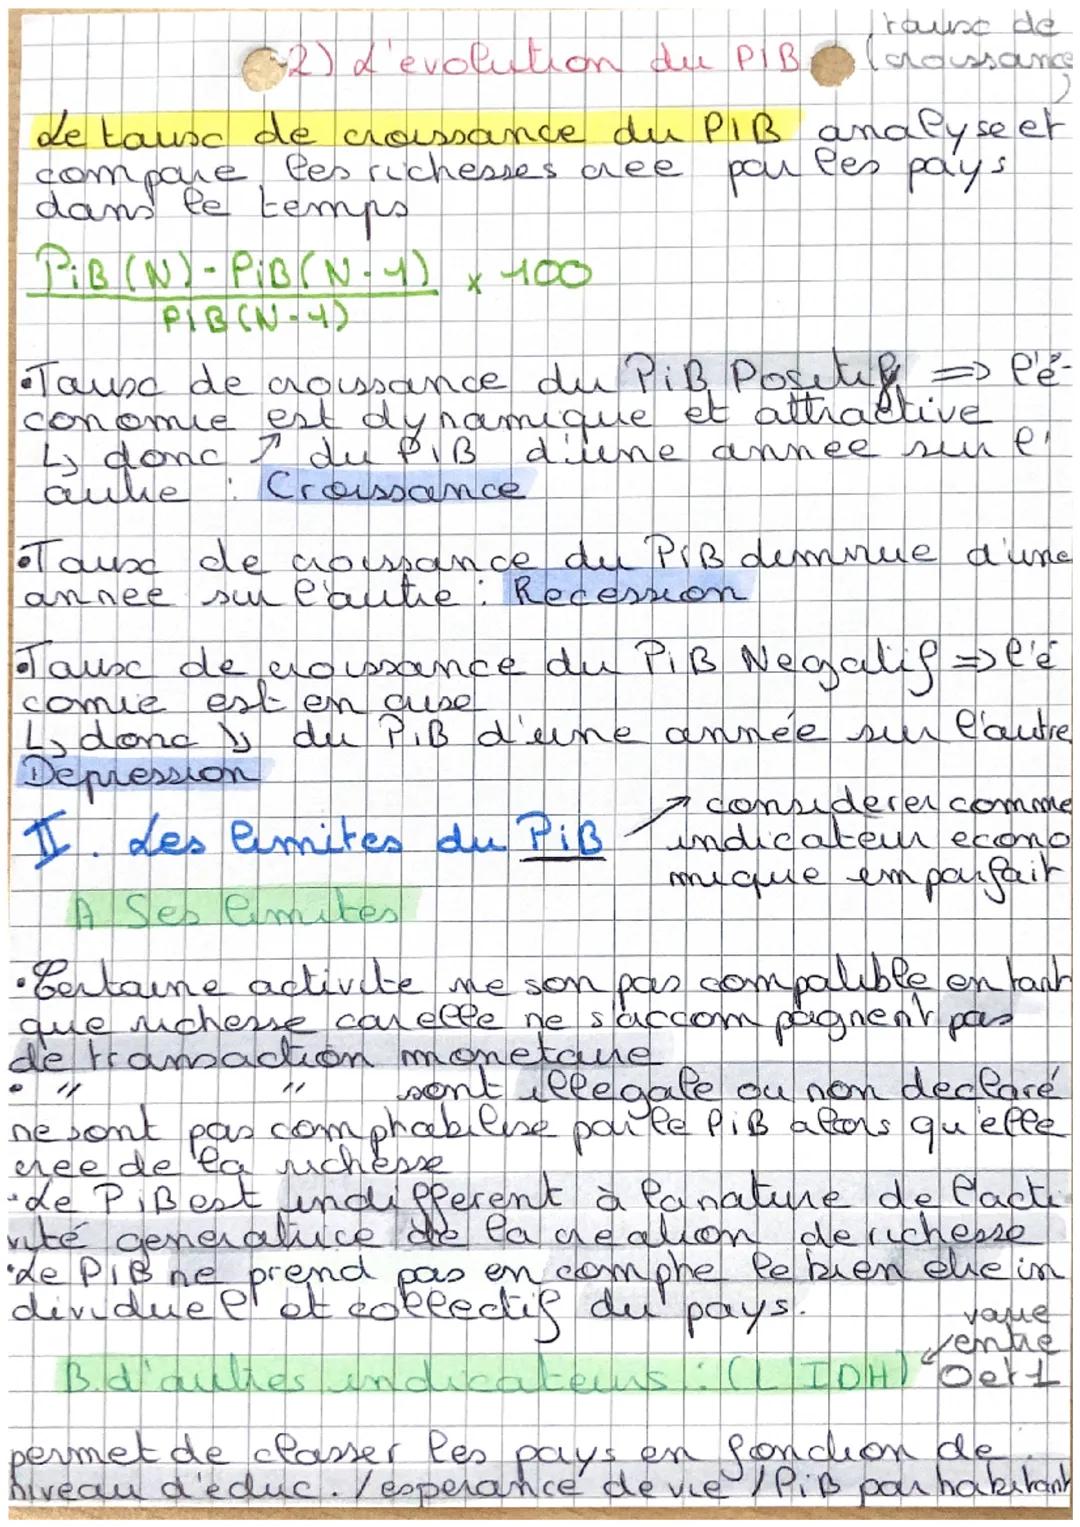 taux de
2) L'évolution du PIB (croissance)
Le taux de croissance du PIB analyse et
compare les richesses cree par les pays
dans le temps
PiB (N) - PiB (N-1) x 100
PIB (N-1)
• Taux de croissance du PiB Positif => l'é-
conomie est dynamique et attractive
↳ donc ↗ du PiB d'une annee sur l'
autre : Croissance
• Taux de croissance du PiB deminue d'une
annee sur l'autre : Recession
• Taux de croissance du PiB Negatif => l'é
comie est en crise
↳ donc ↘ du PiB d'une année sur l'autre
Depression
↗ considerer comme
II. Les limites du PiB indicateur econo
mique emparfait
A Ses limites
• Certaine activite ne son pas compatible en tant
que richesse car elle ne s'accompagnent pas
de transaction monetaire
• " " sont illegale ou non declaré
ne sont pas comptabilise par le PiB alors qu'elle
cree de la richesse
• Le PiB est indifferent à la nature de l'acti
vité generatrice de la creation de richesse
• Le PiB ne prend pas en compte le bien etre in
dividuel et collectif du pays.
varie
entre
B. d'autres indicateurs : (L'IDH) 0 et 1
permet de classer les pays en fonction de
niveau d'éduc. / esperance de vie / PiB par habitant